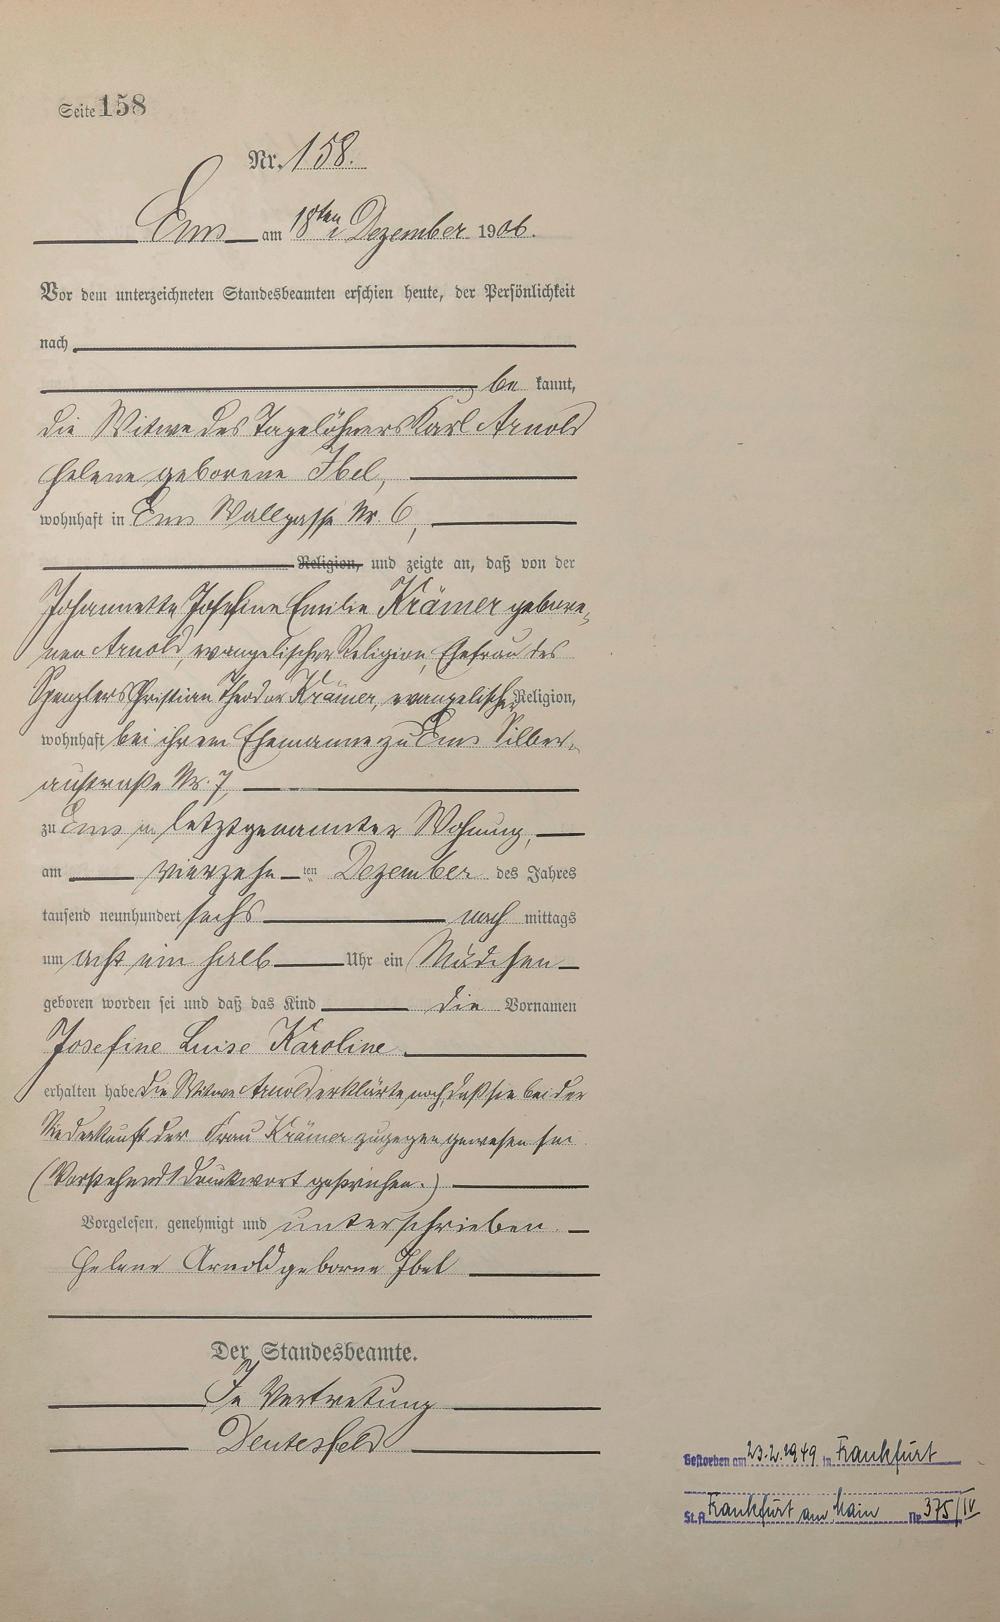 Seite 158
Nr. 158.
Ems am 18ten Dezember 1906.
Vor dem unterzeichneten Standesbeamten erschien heute, der Persönlichkeit
nach
be kannt,
die Witwe des Tagelöhners Karl Arnold
Helene geborene Ibel,
wohnhaft in Ems Wallgasse Nr. 6,
Religion, und zeigte an, daß von der
Johannette Josefine Emilie Krämer gebore-
nen Arnold, evangelischer Religion, Ehefrau des
Spenglers Christian Theodor Krämer, evangelischer Religion,
wohnhaft bei ihrem Ehemanne zu Ems Silber-
austraße Nr. 7,
zu Ems in letztgenannter Wohnung,
am vierzehn ten Dezember des Jahres
tausend neunhundert sechs nach mittags
um acht ein halb Uhr ein Mädchen
geboren worden sei und daß das Kind die Vornamen
Josefine Luise Karoline
erhalten habe. Die Witwe Arnold erklärte noch, daß sie bei der
Niederkunft der Frau Krämer zugegen gewesen sei
(Vorstehend 1 Druckwort gestrichen.)
Vorgelesen, genehmigt und unterschrieben.
Helene Arnold geborne Ibel
Der Standesbeamte.
In Vertretung
Gestorben am 23.2.1949 in Frankfurt
St.A. Frankfurt am Main Nr. 375/IV